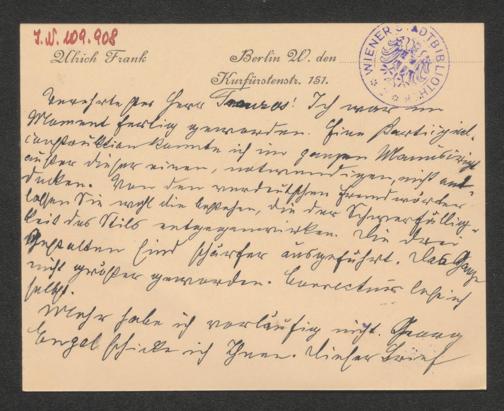 I.N. 109.908
Ulrich Frank
Berlin W. den
Kurfürstenstr. 151.
WIENER STADTBIBLIOTHEK
Verehrtester Herr Franzos! Ich war im
Moment fertig geworden. Eine Partizipial-
construktion konnte ich im ganzen Manuscript
außer dieser einen, notwendigen, nicht ent-
decken. Von den verdeutschten Fremdwörtern
lassen Sie wohl die bestehen, die der Schwerfällig-
keit des Stils entgegenwirken. Die drei
Gestalten sind schärfer ausgeführt. Das Ganze
nicht größer geworden. Correctur lese ich
selbst.
Mehr habe ich vorläufig nicht. Georg
Engel schicke ich Ihnen. Dieser Brief